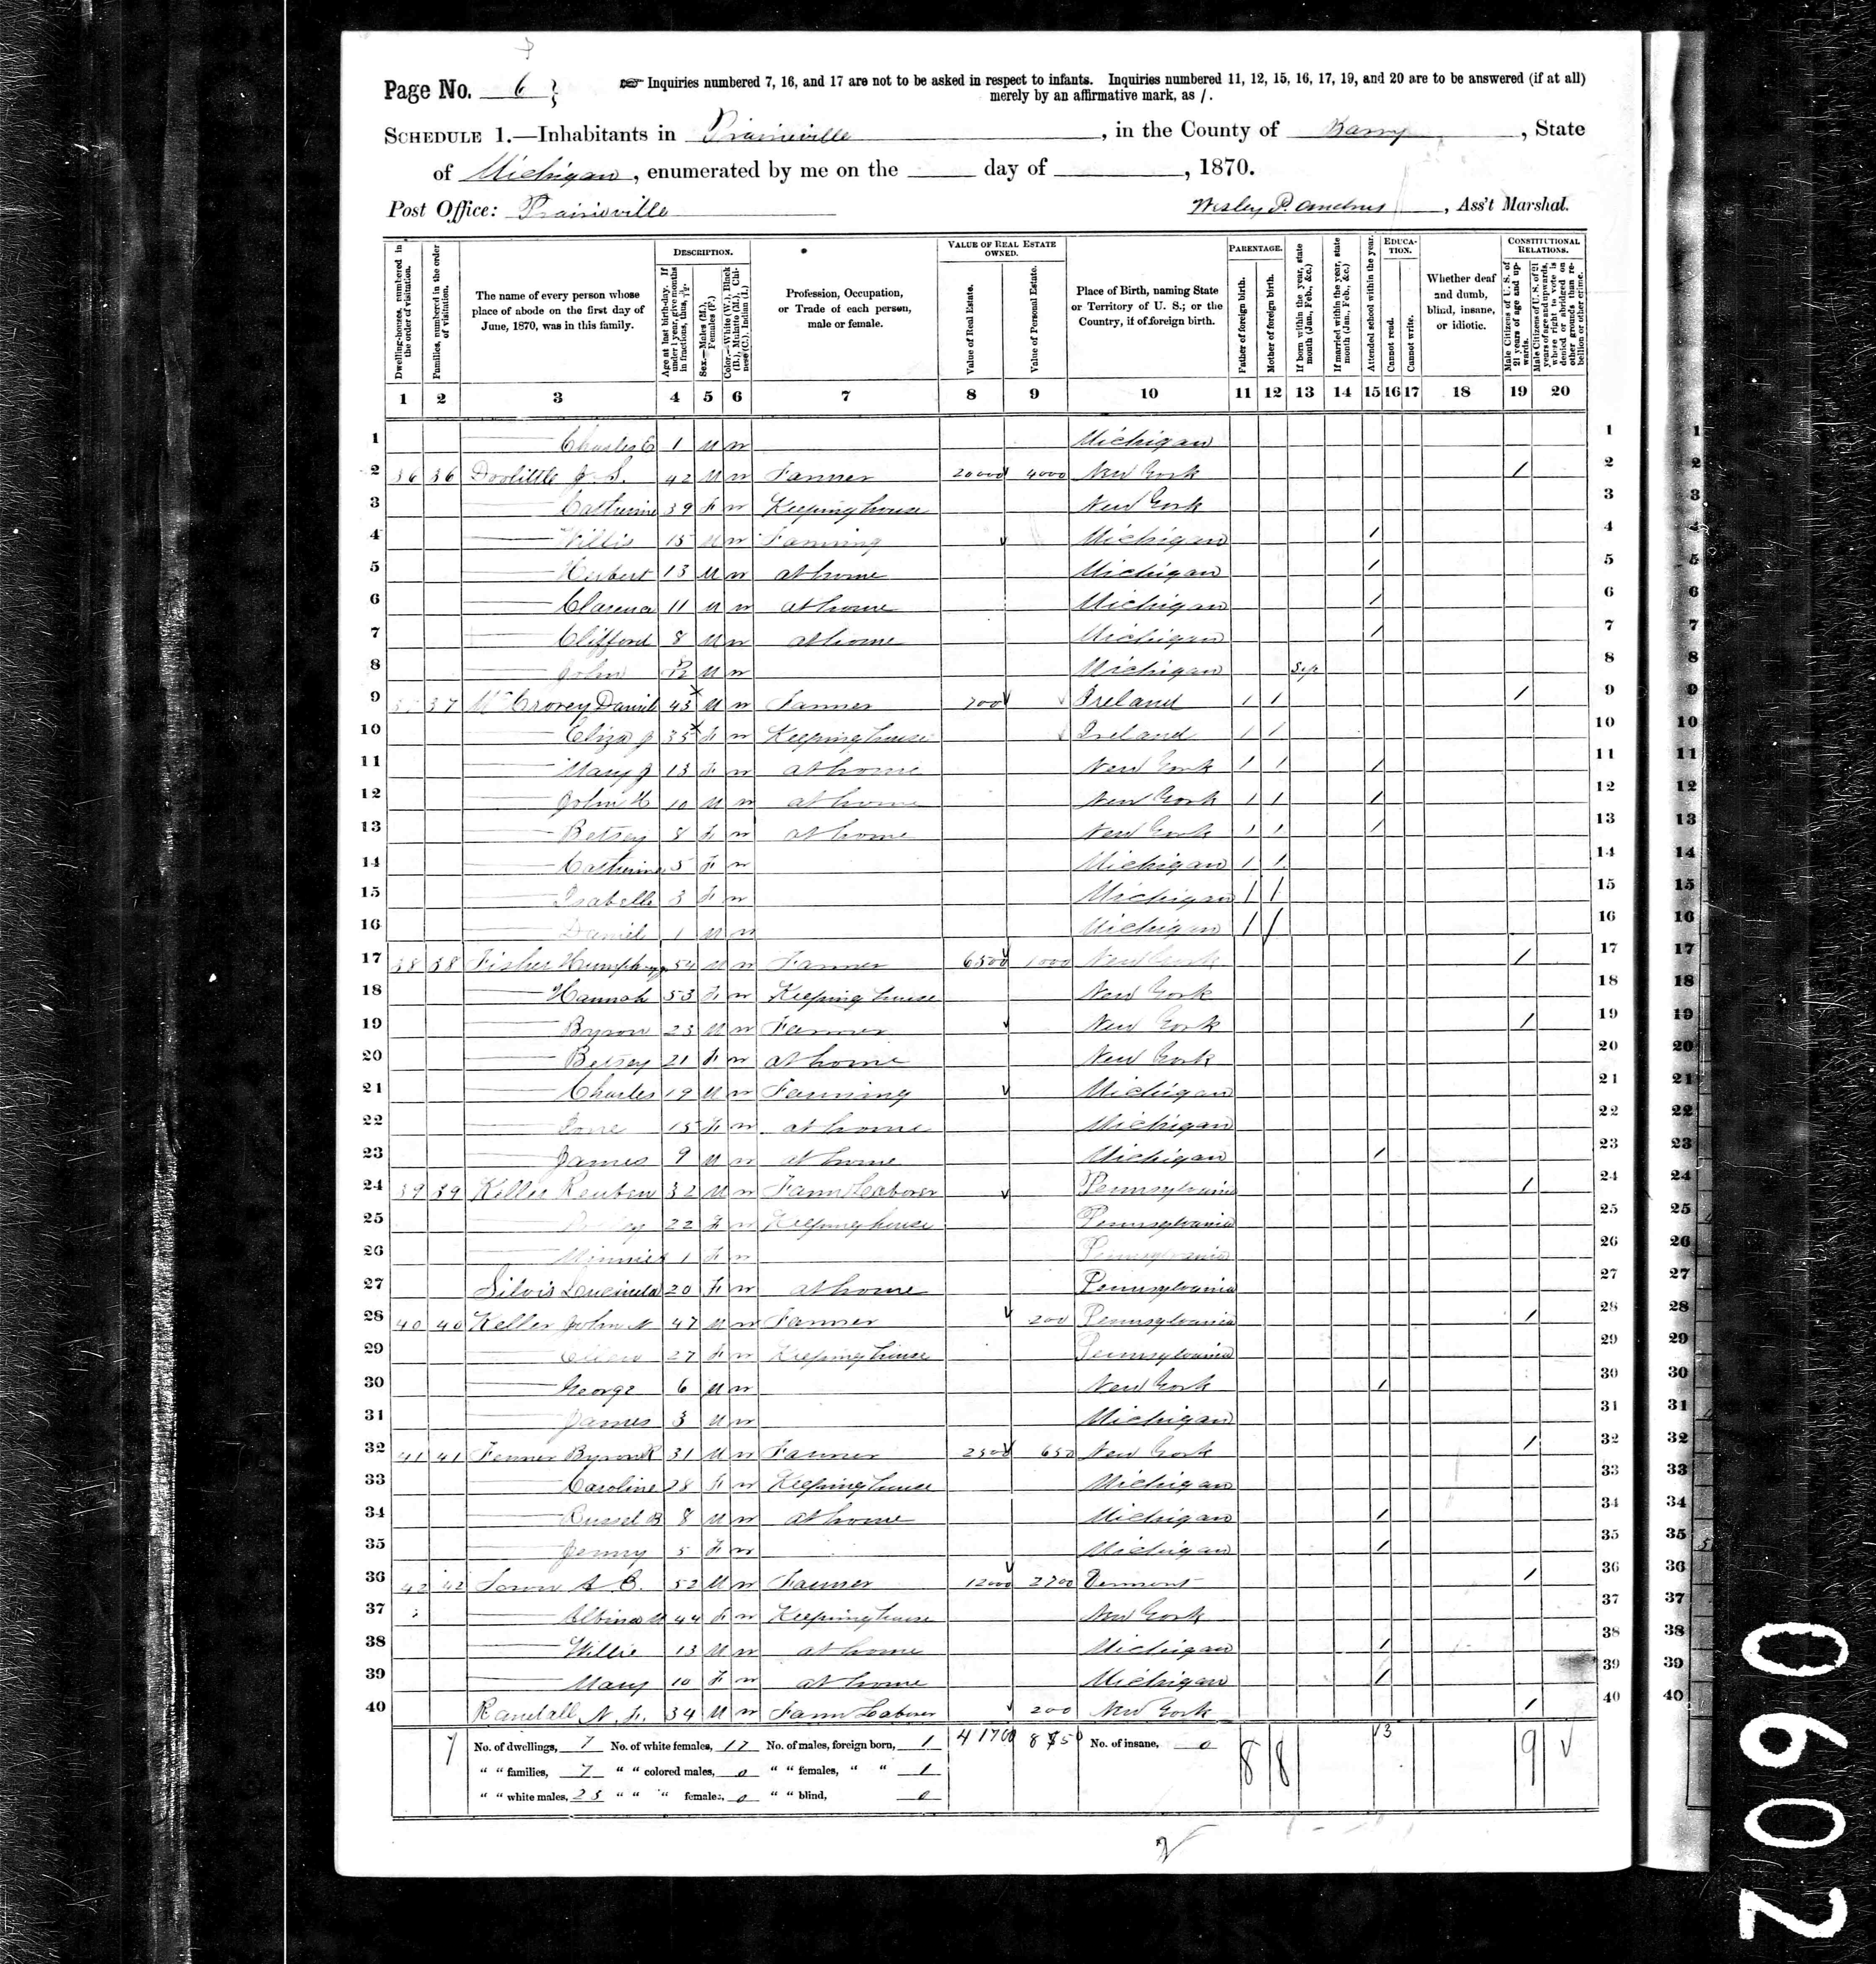 Page No. 6
Inquiries numbered 7, 16, and 17 are not to be asked in respect to infants. Inquiries numbered 11, 12, 15, 16, 17, 19, and 20 are to be answered (if at all)
merely by an affirmative mark, as /.
SCHEDULE 1.—Inhabitants in Prairieville, in the County of Barry, State
of Michigan, enumerated by me on the ___ day of ___, 1870.
Post Office: Prairieville
Wesley P. Andrus, Ass't Marshal.
Dwelling-houses, numbered in the order of visitation.
Families, numbered in the order of visitation.
The name of every person whose place of abode on the first day of June, 1870, was in this family.
DESCRIPTION.
Age at last birth-day. If under 1 year, give months in fractions, thus, 3/12.
Sex.—Males (M.), Females (F.)
Color.—White (W.), Black (B.), Mulatto (M.), Chinese (C.), Indian (I.)
Profession, Occupation, or Trade of each person, male or female.
VALUE OF REAL ESTATE OWNED.
Value of Real Estate.
Value of Personal Estate.
Place of Birth, naming State or Territory of U. S.; or the Country, if of foreign birth.
PARENTAGE.
Father of foreign birth.
Mother of foreign birth.
If born within the year, state month (Jan., Feb., &c.)
If married within the year, state month (Jan., Feb., &c.)
Attended school within the year.
EDUCATION.
Cannot read.
Cannot write.
Whether deaf and dumb, blind, insane, or idiotic.
CONSTITUTIONAL RELATIONS.
Male Citizens of U. S. of 21 years of age and upwards.
Male Citizens of U. S. of 21 years of age and upwards, whose right to vote is denied or abridged on other grounds than rebellion or other crime.
1 2 3 4 5 6 7 8 9 10 11 12 13 14 15 16 17 18 19 20
1 Charles E 1 M W Michigan 1
2 36 36 Doolittle J. S. 42 M W Farmer 20000 4000 New York / 2
3 Catherine 39 F W Keeping house New York 3
4 Willis 15 M W Farming Michigan / 4
5 Herbert 13 M W at home Michigan / 5
6 Clarence 11 M W at home Michigan / 6
7 Clifford 8 M W at home Michigan / 7
8 John M W Michigan Sep 8
9 37 37 McCrorey Daniel 43 M W Farmer 700 Ireland / / / 9
10 Eliza J 35 F W Keeping house Ireland / / 10
11 Mary J 13 F W at home New York / / / 11
12 John H 10 M W at home New York / / / 12
13 Betsey 8 F W at home New York / / / 13
14 Catherine 5 F W Michigan / / 14
15 Isabelle 3 F W Michigan / / 15
16 Daniel 1 M W Michigan / / 16
17 38 38 Fisher Humphrey 54 M W Farmer 6500 1000 New York / 17
18 Hannah 53 F W Keeping house New York 18
19 Byron 23 M W Farmer New York / 19
20 Betsey 21 F W at home New York 20
21 Charles 19 M W Farming Michigan 21
22 Ione 15 F W at home Michigan 22
23 James 9 M W at home Michigan / 23
24 39 39 Keller Reuben 32 M W Farm Laborer Pennsylvania / 24
25 22 F W Keeping house Pennsylvania 25
26 Minnie 1 F W Pennsylvania 26
27 Silvis Lucinda 20 F W at home Pennsylvania 27
28 40 40 Keller John N 47 M W Farmer 200 Pennsylvania / 28
29 Ellen 27 F W Keeping house Pennsylvania 29
30 George 6 M W New York / 30
31 James 3 M W Michigan 31
32 41 41 Fenner Byron R 31 M W Farmer 2500 650 New York / 32
33 Caroline 28 F W Keeping house Michigan 33
34 Russel B 8 M W at home Michigan / 34
35 Jenny 5 F W Michigan / 35
36 42 42 52 M W Farmer 12000 2700 Vermont / 36
37 Albina M 44 F W Keeping house New York 37
38 Willie 13 M W at home Michigan / 38
39 Mary 10 F W at home Michigan / 39
40 Randall N. F. 34 M W Farm Laborer 200 New York / 40
7 No. of dwellings, 7 No. of white females, 17 No. of males, foreign born, 1 41700 No. of insane, 0 8 8 13 9
" " families, 7 " " colored males, 0 " " females, " " 1
" " white males, 23 " " " females, 0 " " blind, 0
0602